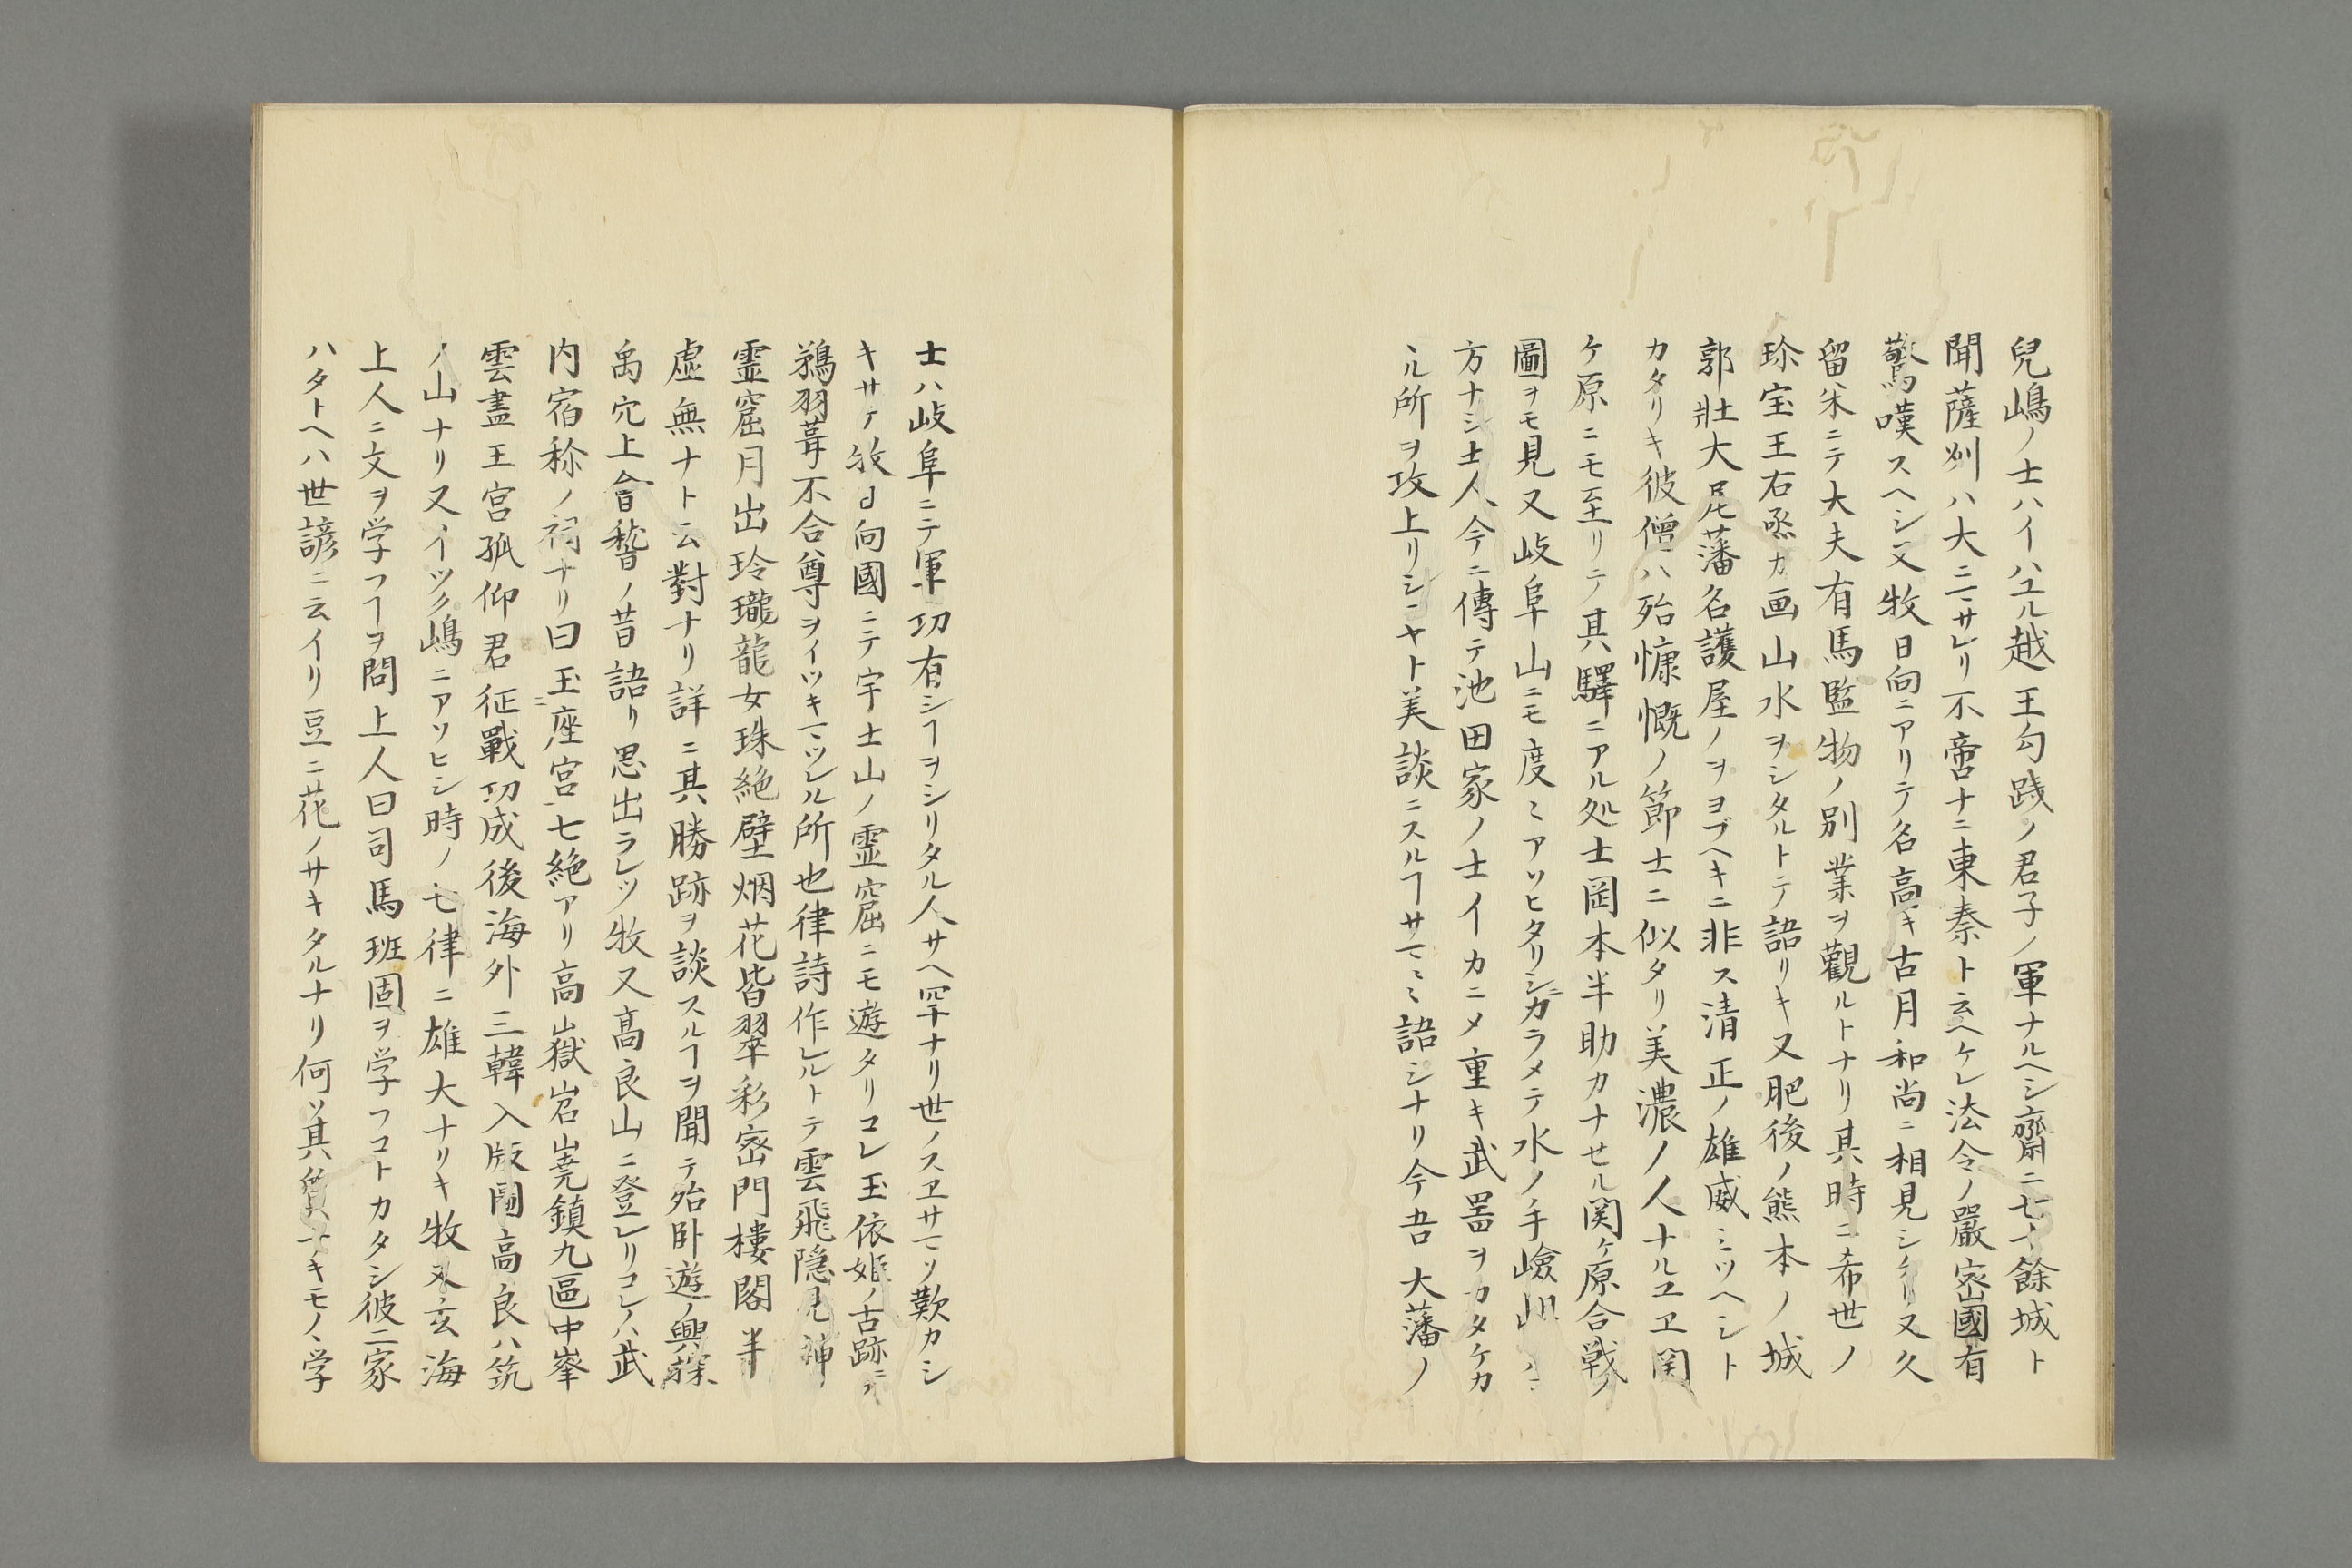 兒嶋ノ士ハイハユル越王勾践ノ君子ノ軍ナルヘシ齋ニ七十餘城ト
聞薩刕ハ大ニマサレリ不啻ナニ東秦ト云ヘケレ法令ノ嚴宻國有
驚嘆スヘシ又牧日向ニアリテ名高キ古月和尚ニ相見シケリ又久
留米ニテ大夫有馬監物ノ別業ヲ觀ルトナリ其時ニ希世ノ
珎宝王右丞カ画山水ヲシタルトテ語リキ又肥後ノ熊本ノ城
郭壯大尾藩名護屋ノヲヨブヘキニ非ス清正ノ雄威ミツヘシト
カタリキ彼僧ハ殆慷慨ノ節士ニ似タリ美濃ノ人ナルユヱ関
ケ原ニモ至リテ其驛ニアル処士岡本半助カナセル関ケ原合戦ノ
圖ヲモ見又岐阜山ニモ度〻アソヒタリシニカラメテ水ノ手嶮岨ハ
方ナシ士人今ニ傳テ池田家ノ士イカニメ重キ武噐ヲカタケカ
ヽル所ヲ攻上リシニヤト美談ニスルヿサマ〻〻語シナリ今吾大藩ノ
士ハ岐阜ニテ軍功有シヿヲシリタル人サヘ罕ナリ世ノスヱサマソ歎カシ
キサテ牧日向國ニテ宇土山ノ霊窟ニモ遊タリコレ玉依姫ノ古跡ニテ
鵜羽葺不合尊ヲイツキマツレル所也律詩作レルトテ雲飛隠見神
霊窟月出玲瓏龍女珠絶壁烟花皆翠彩宻門樓閣半
虚無ナト云對ナリ詳ニ其勝跡ヲ談スルヿヲ聞テ殆卧遊ノ興探
禹穴上會稽ノ昔語リ思出ラレツ牧又髙良山ニ登レリコレハ武
内宿祢ノ祠ナリ曰玉座ニ宮七絶アリ高嶽岧嶤鎮九區中峯
雲盡王宮孤仰君征戰功成後海外三韓入版圖高良ハ筑
ノ山ナリ又イツク嶋ニアソヒシ時ノ七律ニ雄大ナリキ牧又玄海
上人ニ文ヲ学フヿヲ問上人曰司馬班固ヲ学フコトカタシ彼二家
ハタトヘハ世諺ニ云イリ豆ニ花ノサキタルナリ何ソ其質ナキモノヽ学